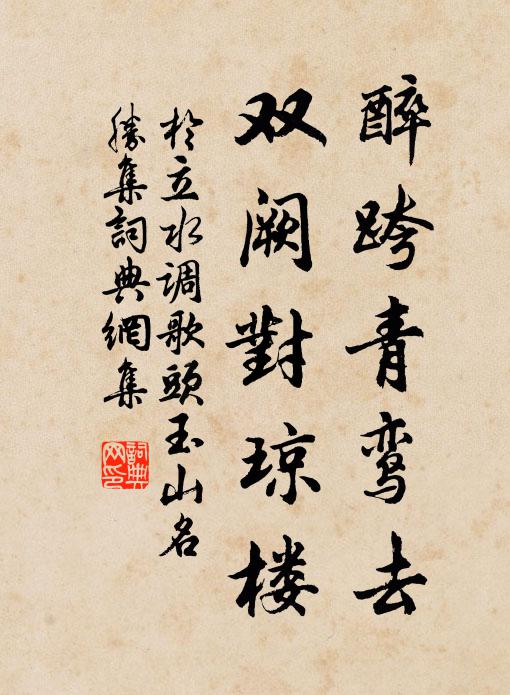 醉跨青鸾去
双阙對琼楼
於立水调歌頭玉山名
勝集詞典網集
詞典
网印